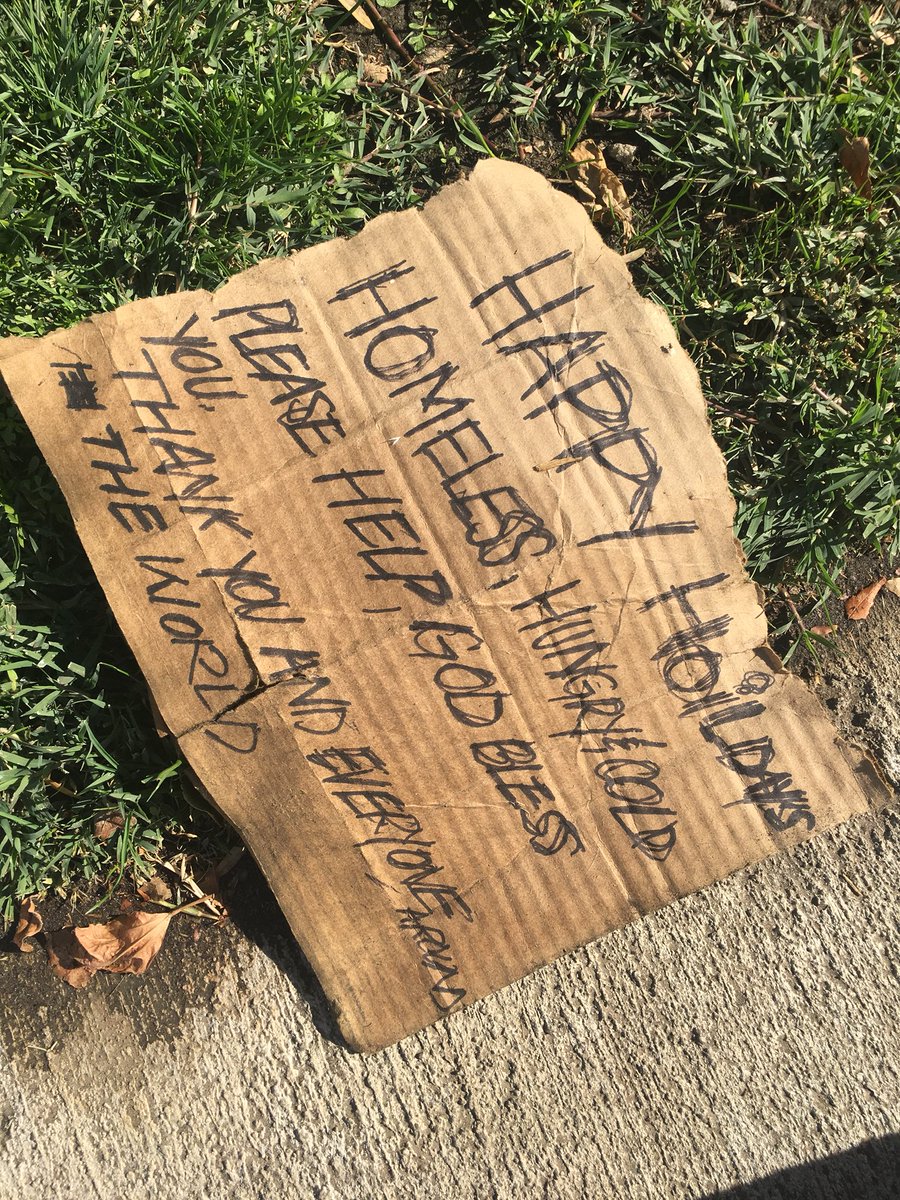 HAPPY HOILDAYS
HOMELESS, HUNGRY & COLD
PLEASE HELP, GOD BLESS
YOU, THANK YOU AND EVERYONE AROUND
THE WORLD